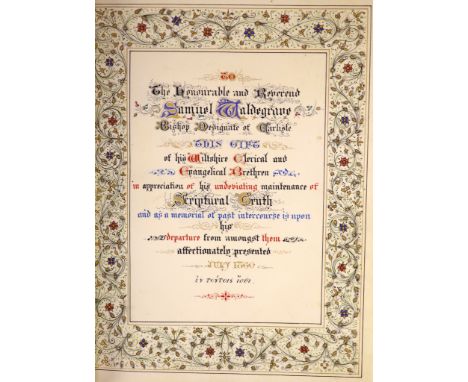 TO
The Honourable and Reverend
Samuel Waldegrave
Bishop Designate of Carlisle
THIS GIFT
of his Wiltshire Clerical and
Evangelical Brethren
in appreciation of his undeviating maintenance of
Scriptural Truth
and as a memorial of past intercourse is upon
his
departure from amongst them
affectionately presented
JULY 1860
ἐν τούτοις ἴσθι